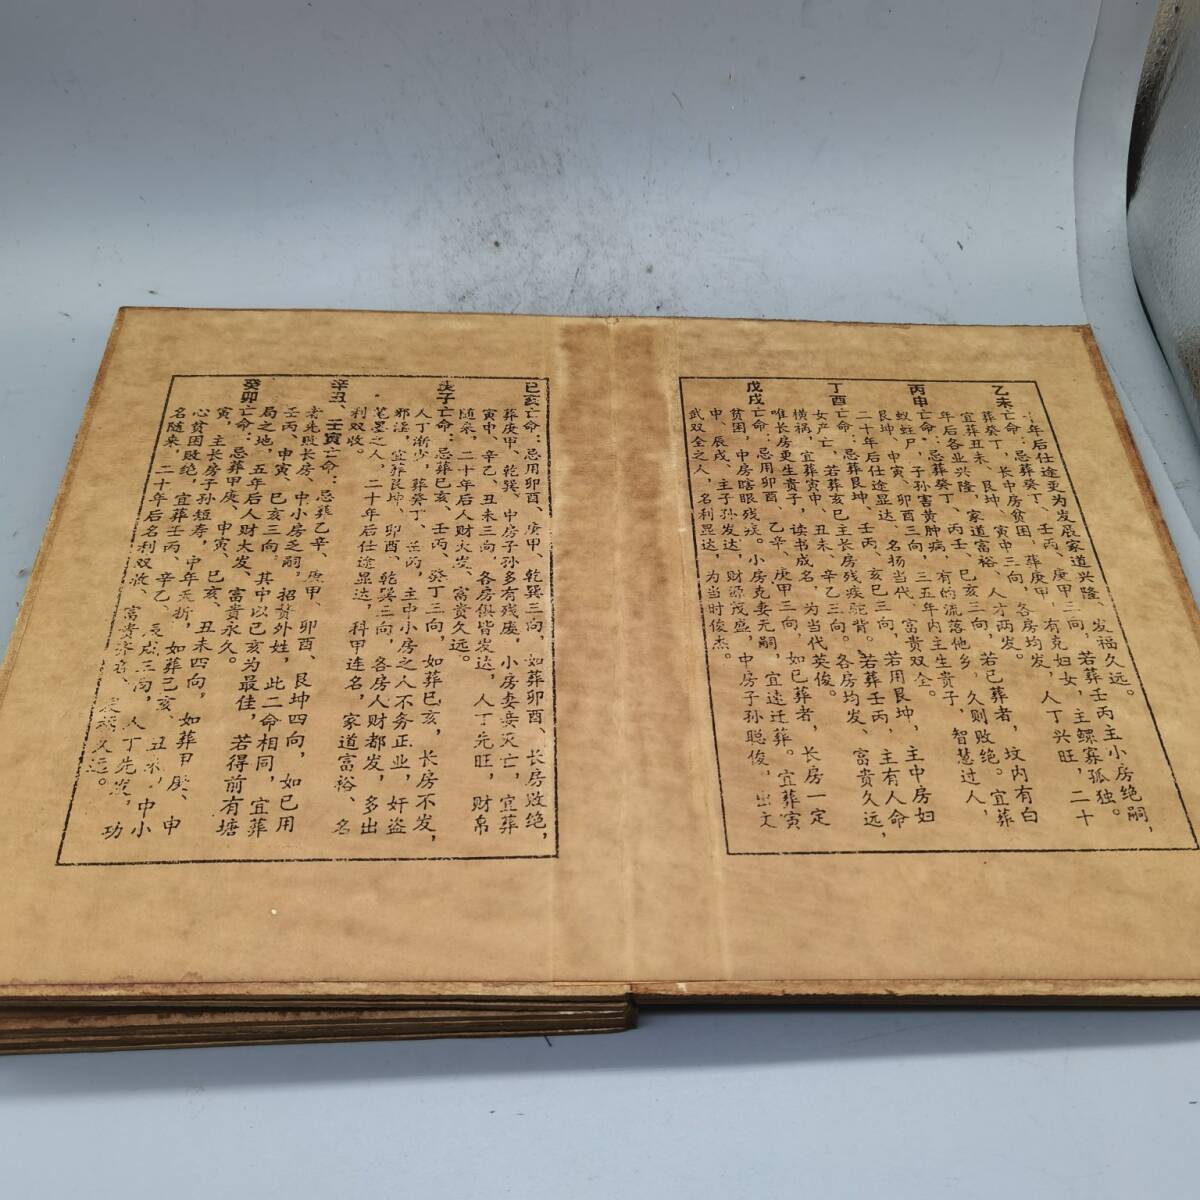 年后仕途更为发展家道兴隆、发福久远。
乙未亡命：忌葬癸丁、壬丙、庚甲三向，若葬壬丙主小房绝嗣，
葬癸丁，长中房贫困，葬庚甲，有克妇女，主螺寡孤独。
宜葬丑未、艮坤、寅申三向，各房均发，人丁兴旺，二十
年后各业兴隆，家道富裕、人才两发。
丙申亡命：忌葬癸丁、丙壬、巳亥三向，若已葬者，坟内有白
蚁蛀尸，子孙害黄肿病，有的流落他乡，久则败绝。宜葬
艮坤、申寅、卯酉三向，三五年内主生贵子，智慧过人，
二十年后仕途显达、名扬当代、富贵双全。
丁酉亡命：忌葬艮坤、壬丙、亥巳三向，若用艮坤，主中房妇
女产亡，若葬亥巳主长房残疾驼背。若葬壬丙，主有人命
横祸，宜葬寅申、丑未、辛乙三向。各房均发、富贵久远，
唯长房更生贵子，读书成名，为当代英俊。
戊戌亡命：忌用卯酉、乙辛、庚甲三向，如已葬者，长房一定
贫困，中房瞎眼残疾。小房克妻无嗣，宜速迁葬。宜葬寅
申、辰戌，主子孙发达，财源茂盛，中房子孙聪俊，出文
武双全之人，名利显达，为当时俊杰。
己亥亡命：忌用卯酉、庚甲，乾巽三向，如葬卯酉、长房败绝，
葬庚甲、乾巽、中房子孙多有残废，小房妻妾灭亡，宜葬
寅申、辛乙、丑未三向，各房俱皆发达，人丁先旺，财帛
随来，二十年后人财大发、富贵久远。
庚子亡命：忌葬巳亥、壬丙、癸丁三向，如葬巳亥，长房不发，
人丁渐少，葬癸丁、壬丙，主中小房之人不务正业，奸盗
邪淫，宜葬艮坤、卯酉、乾巽三向，各房人财都发，多出
笔墨之人，二十年后仕途显达，科甲连名，家道富裕、名
利双收。
辛丑、壬寅亡命：忌葬乙辛、庚甲、卯酉、艮坤四向，如已用
者先败长房、中小房乏嗣，招赘外姓，此二命相同，宜葬
壬丙、申寅、巳亥三向。其中以巳亥为最佳，若得前有塘
局之地，五年后人财大发、富贵永久。
癸卯亡命：忌葬甲庚、申寅、巳亥、丑未四向，如葬甲庚、申
寅，主长房子孙短寿，中年夭折，如葬巳亥、丑未，中小
心贫困败绝，宜葬壬丙、辛乙、辰戌三向，人丁先发，功
名随来，二十年后名利双收、富贵齐名、发福久远。